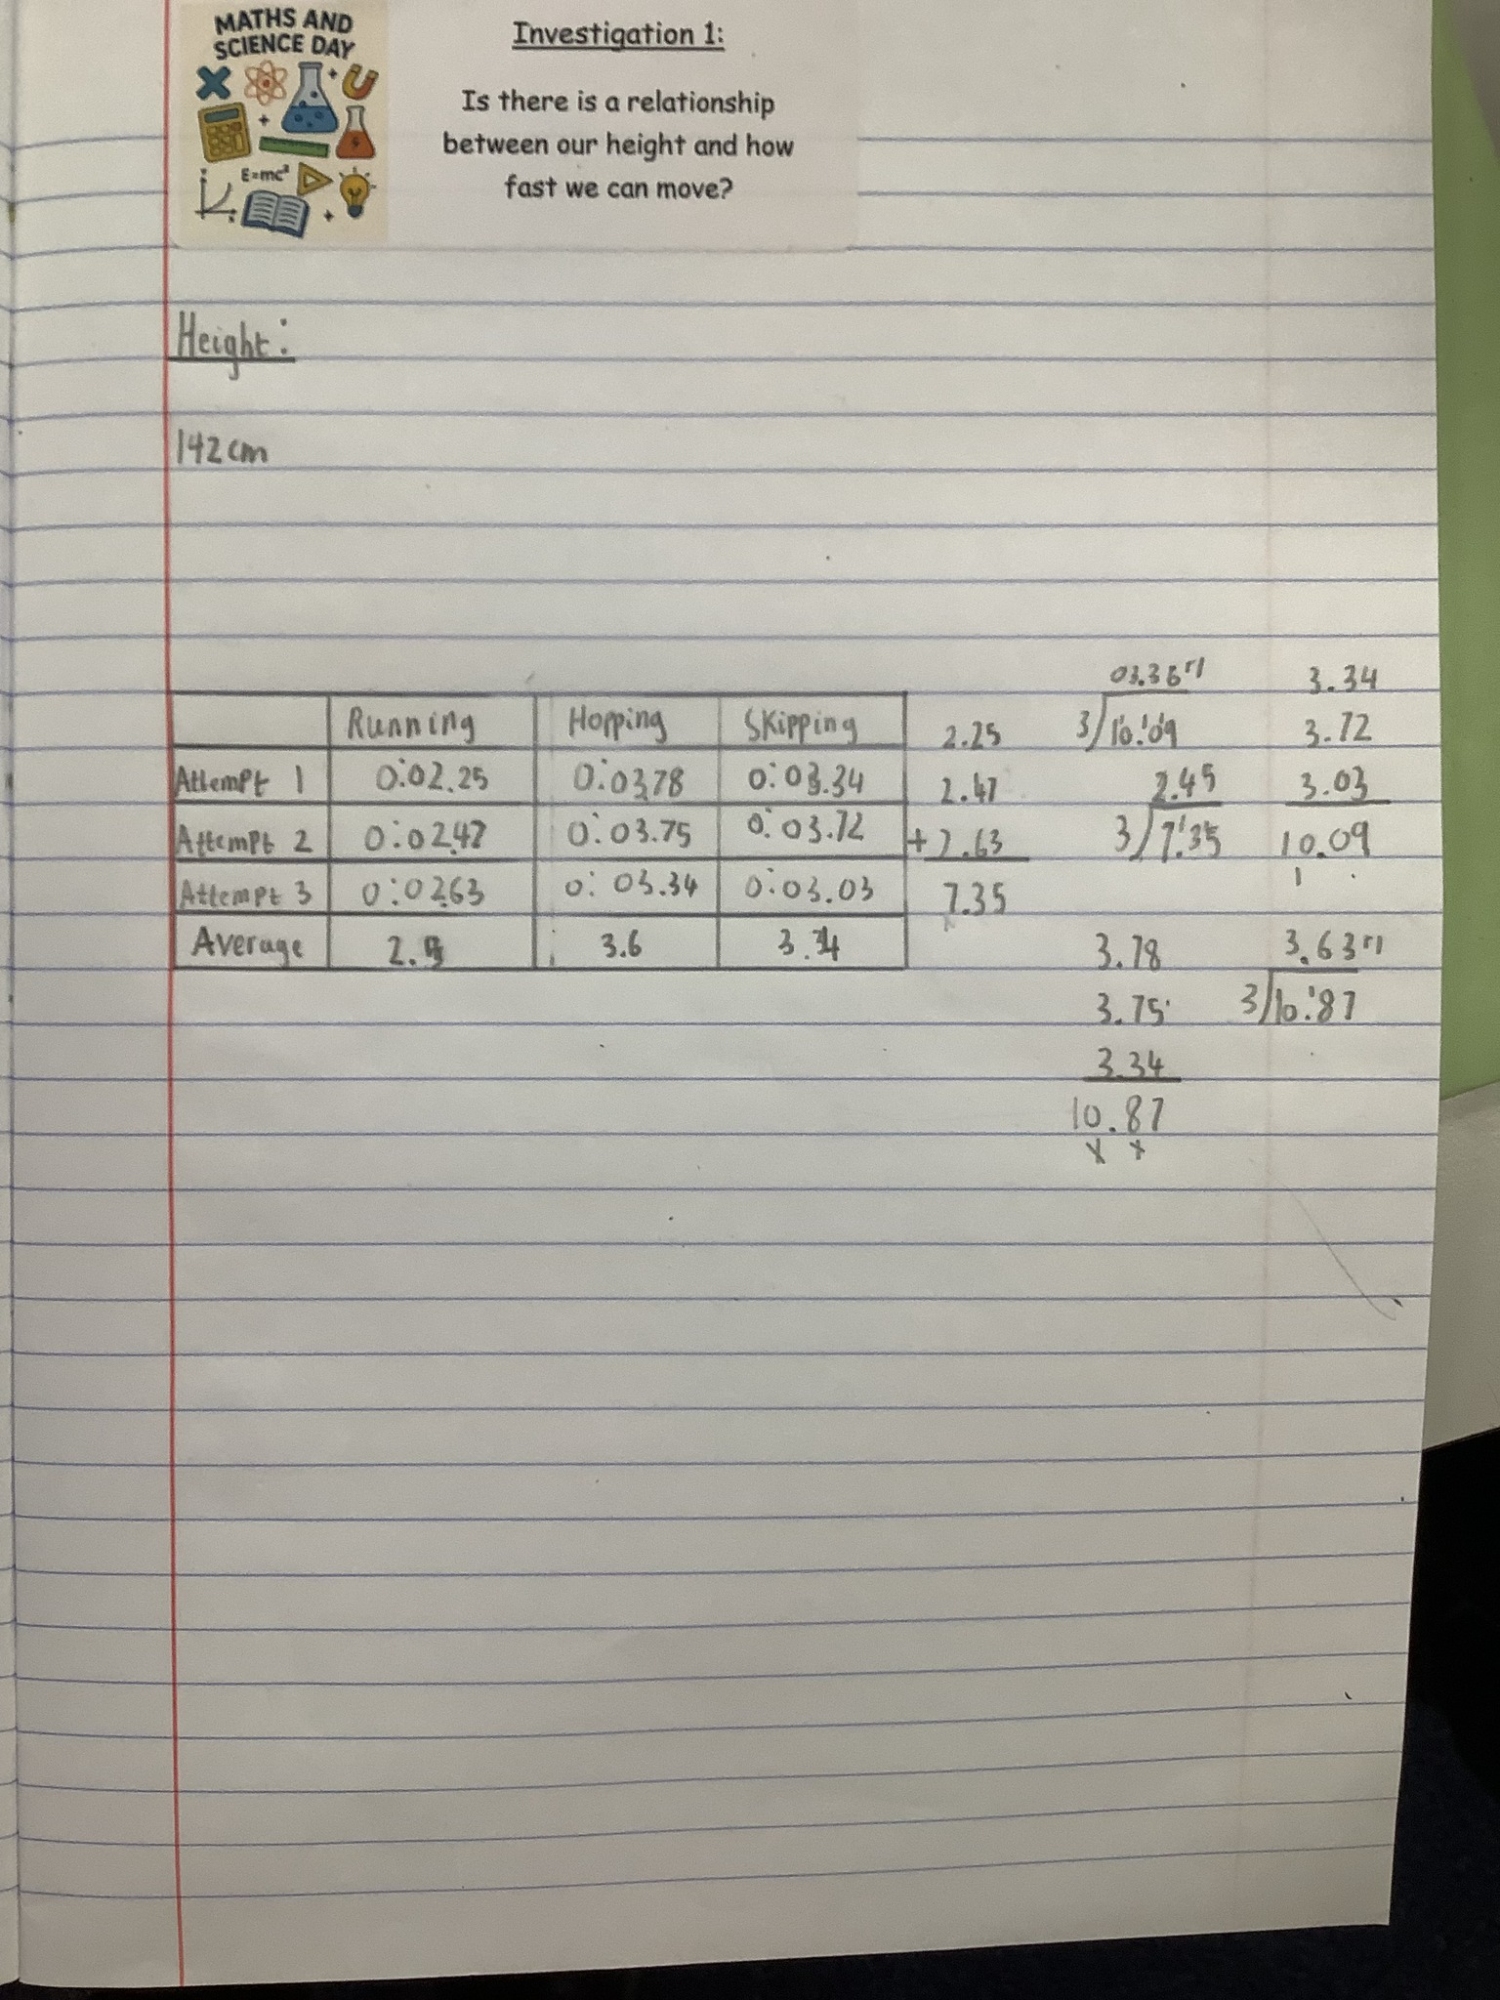 MATHS AND
SCIENCE DAY
E=mc²
Investigation 1:
Is there is a relationship
between our height and how
fast we can move?
Height:
142cm
Running Hopping Skipping
Attempt 1 0:02.25 0:03.78 0:03.34
Attempt 2 0:02.47 0:03.75 0:03.72
Attempt 3 0:02.63 0:03.34 0:03.03
Average 2.5 3.6 3.4
2.25
2.47
+2.63
7.35
03.36r1
3/10.09
2.45
3/7.35
3.34
3.72
3.03
10.09
1
3.78
3.75
3.34
10.87
3.63r1
3/10.87